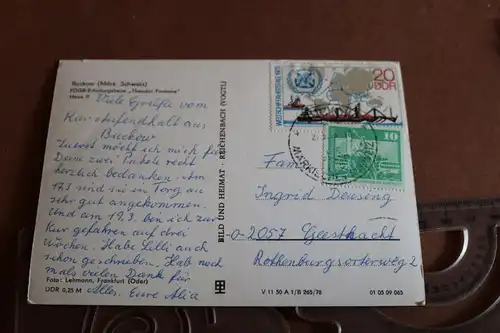 Buckow (Märk. Schweiz)
FDGB-Erholungsheim „Theodor Fontane"
Haus II
Viele Grüße vom
Kuraufenthalt aus
Buckow
Zuerst möcht ich mich für
Deine zwei Pakete recht
herzlich bedanken. Am
17.3 sind sie in Torgau an
sehr gut angekommen.
Und am 19.3. bin ich zur
Kur gefahren auf drei
Wochen. Habe Lilli auch
schon geschrieben. Hab noch
mals vielen Dank für
Alles. Eure
Foto: Lehmann, Frankfurt (Oder)
DDR 0,25 M
BILD UND HEIMAT · REICHENBACH (VOGTL)
V 11 50 A 1/B 265/78
01 05 09 065
WELTSCHIFFAHRTSTAG 1978
20
DDR
10
Fam
Ingrid
D-2057 Geesthacht
Rothenburgsorterweg 2